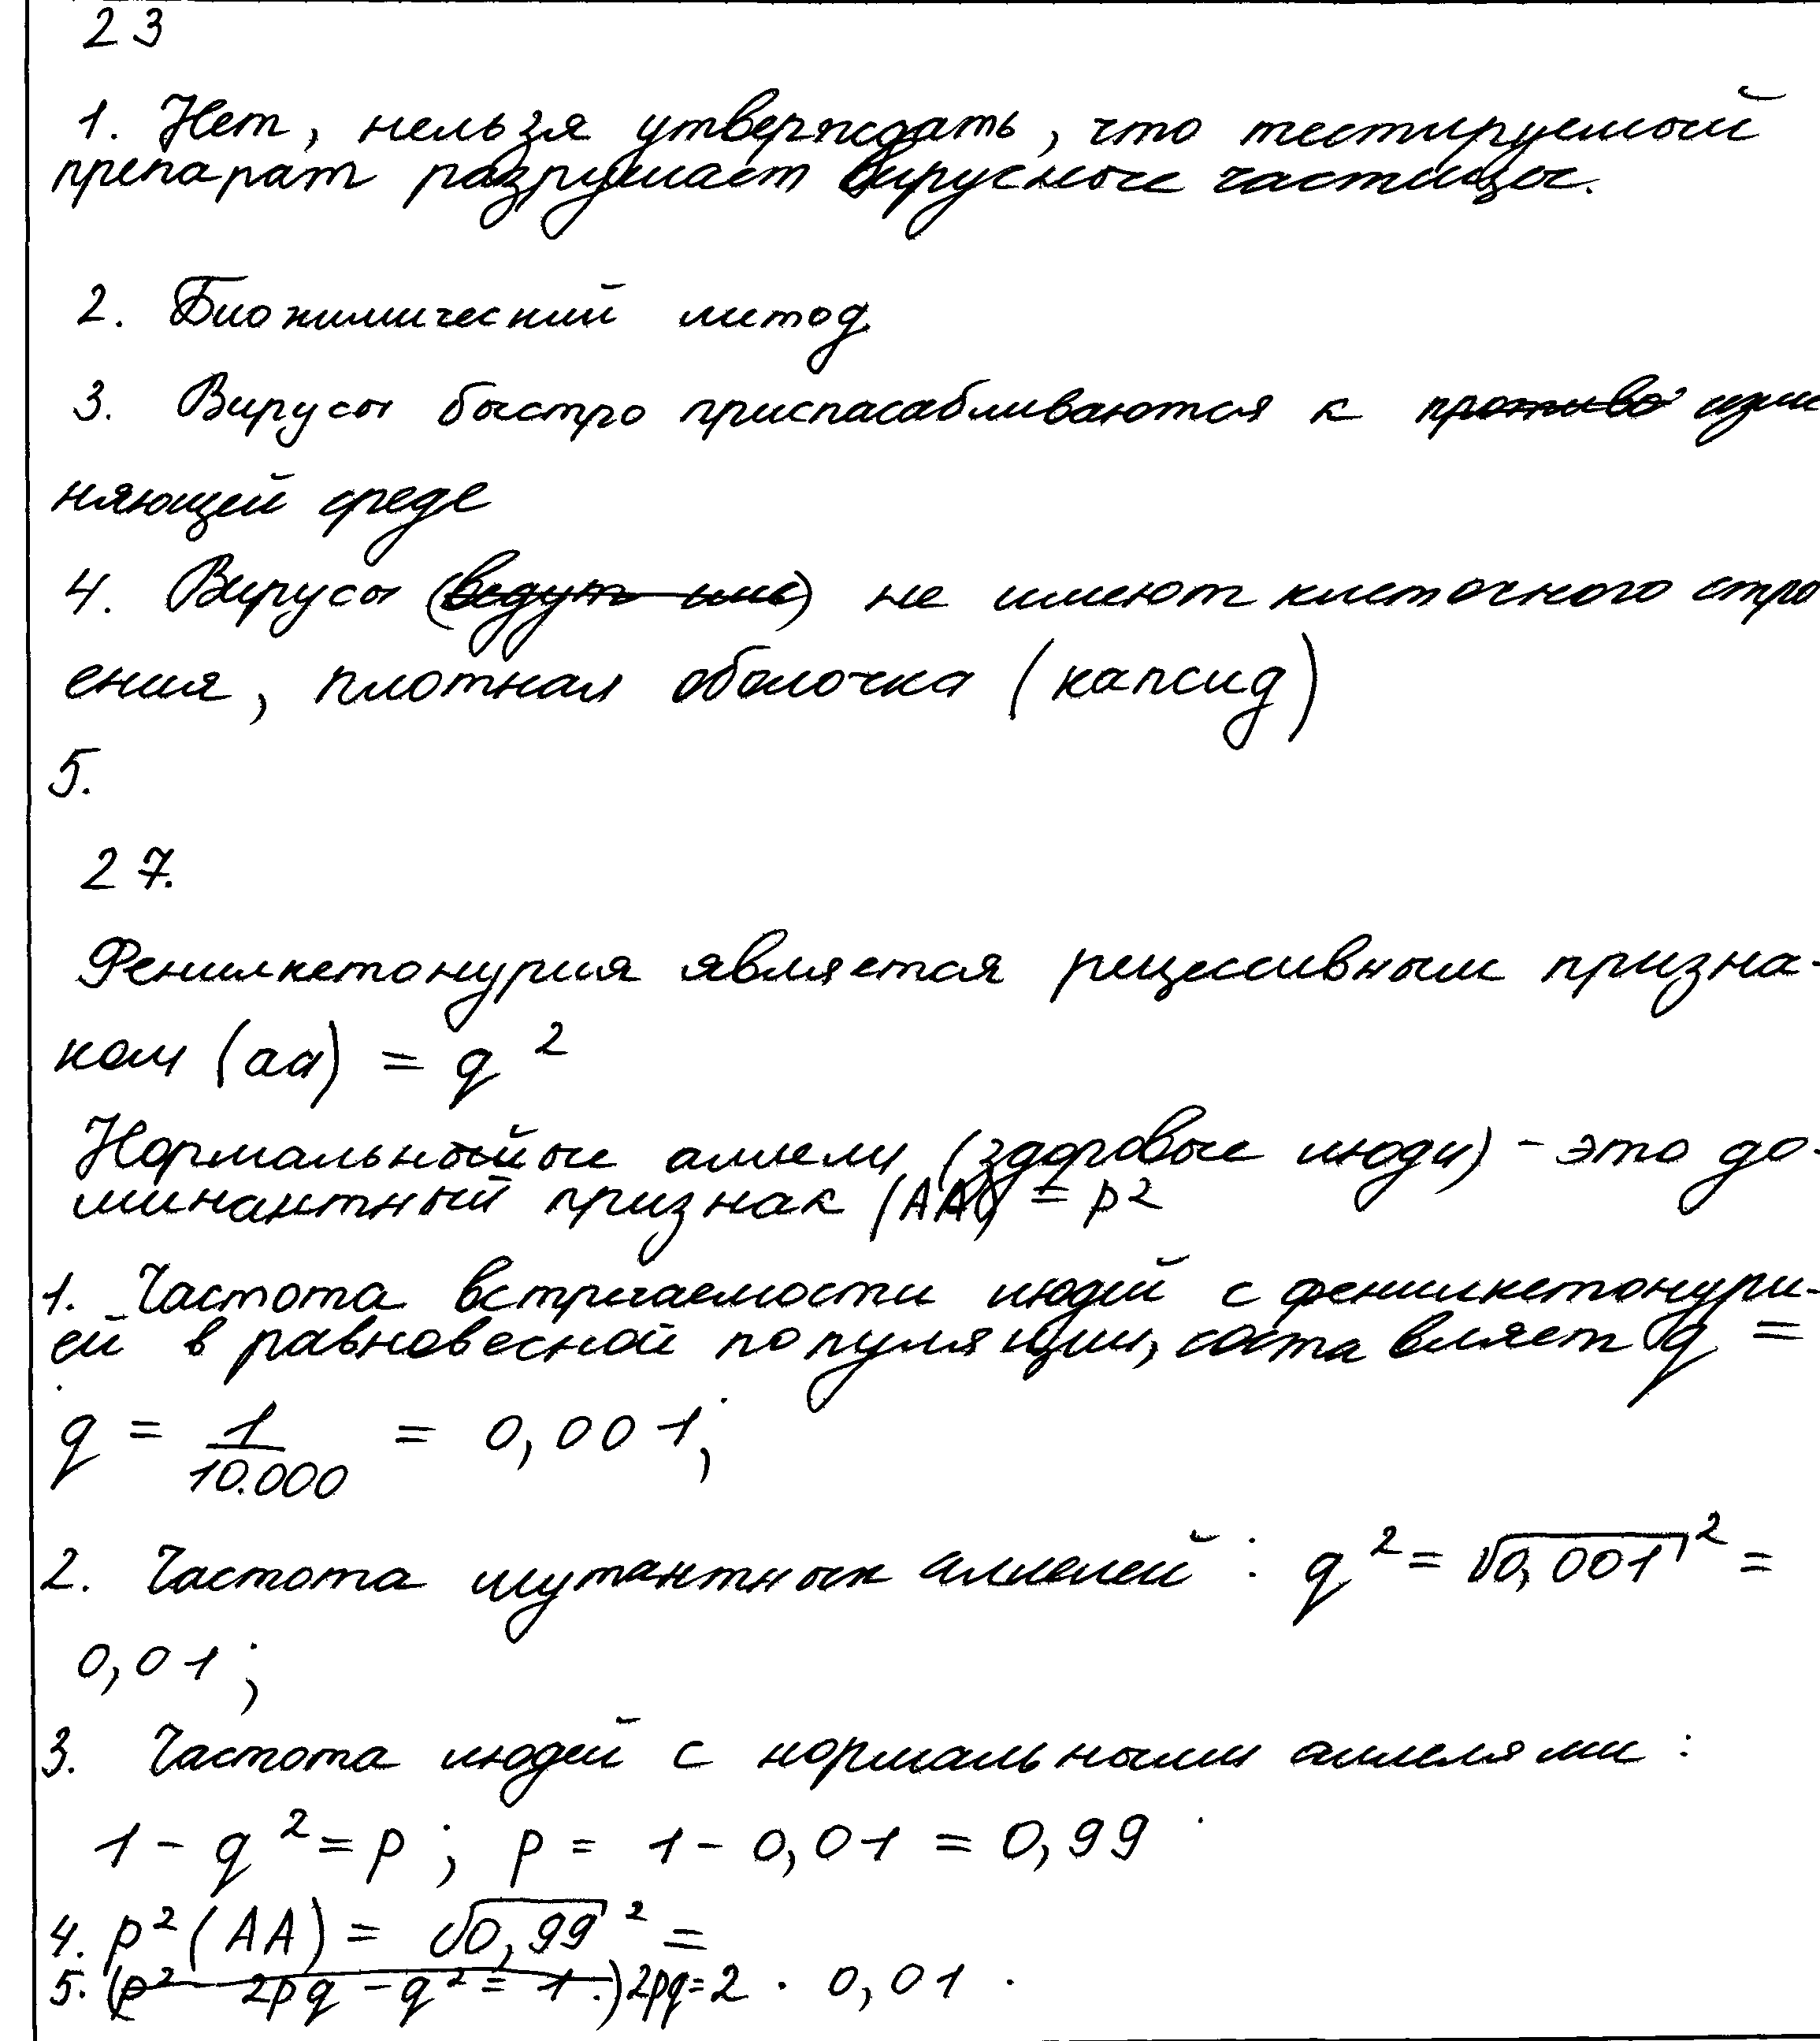 23
1. Нет, нельзя утверждать, что тестируемый
препарат разрушает вирусные частицы.
2. Биохимический метод
3. Вирусы быстро приспасабливаются к противо изме
няющей среде
4. Вирусы (ведут име) не имеют клеточного стро
ения, плотная оболочка (капсид)
5.
27.
Фенилкетонурия является рецессивным призна-
ком (aa) = q²
Нормальныйые аллели (здоровые люди) - это до-
минантный признак (АА) = p2
1. Частота встречаемости людей с фенилкетонури-
ей в равновесной популяции, составляет q =
q = 1/10.000 = 0,001;
2. Частота мутантных аллелей : q² = √0,001² =
0,01;
3. Частота людей с нормальными аллелями :
1 - q² = p ; p = 1 - 0,01 = 0,99
4. p² (АА) = √0,99² =
5. (p² 2pq - q² = 1.) 2pq = 2 · 0,01 ·